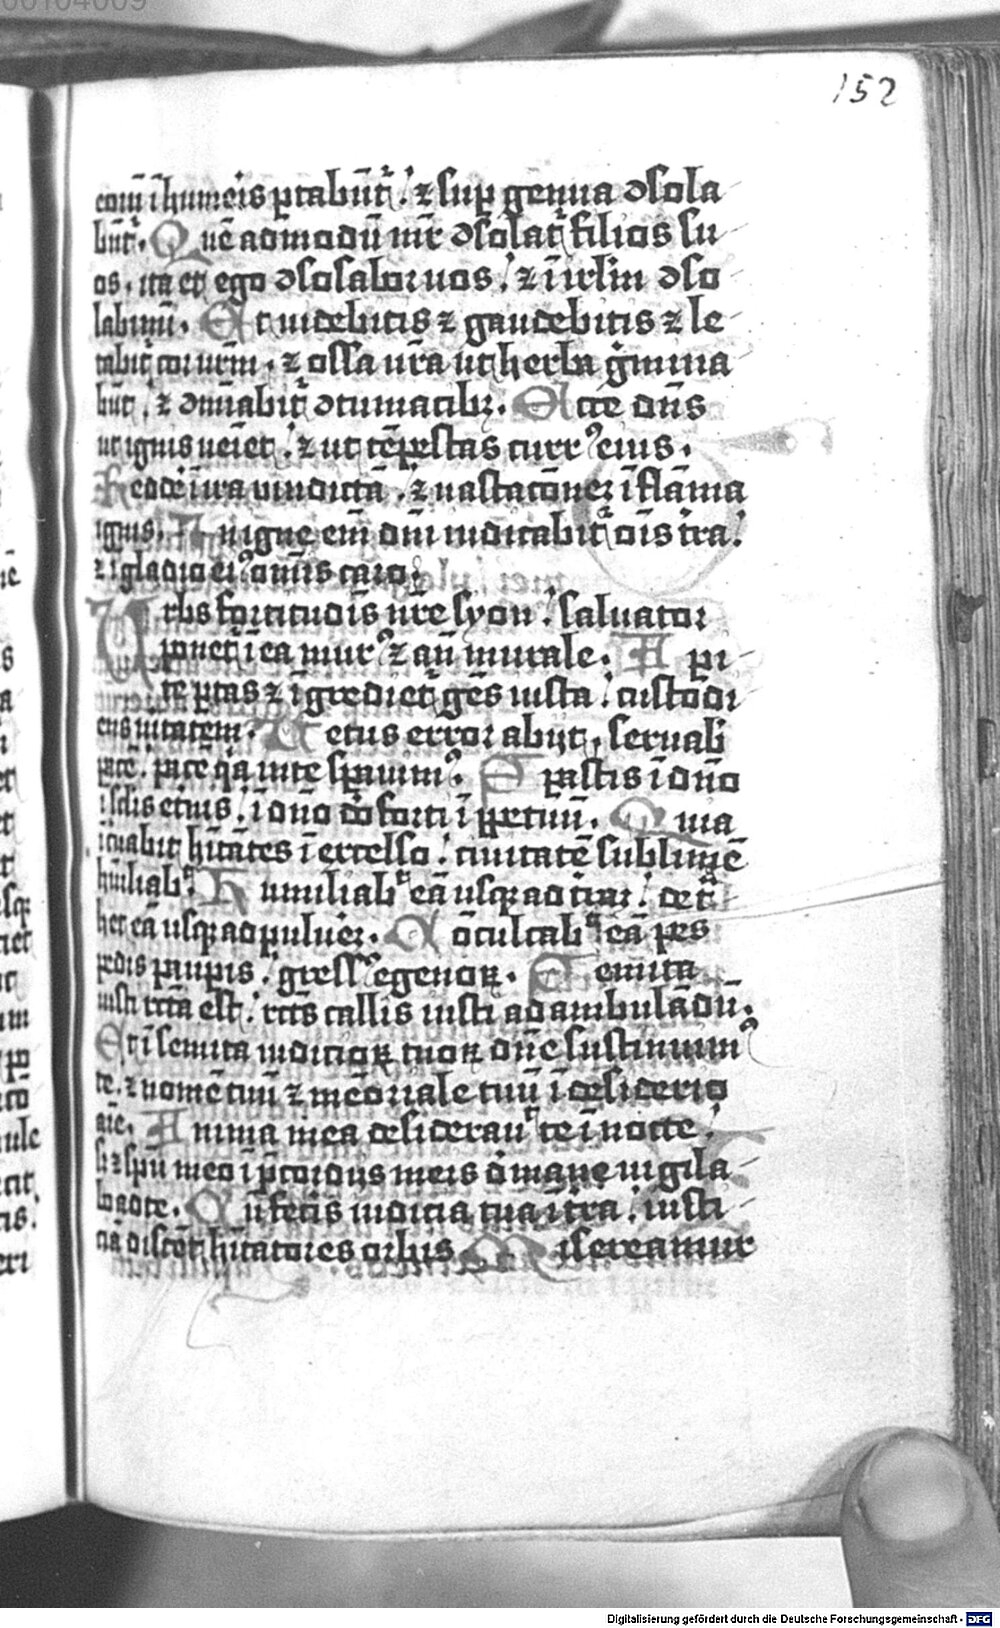 152
eoꝝ ī humeis ꝑtabūt᷑ ⁊ sup genua ꝯsola
būt᷑. Quē admodū mr̄ ꝯsolat᷑ filios su
os. ita et ego ꝯsolabor uos ⁊ ī irlm̄ ꝯso
labimī. Et uidebitis ⁊ gaudebitis ⁊ le
tabit᷑ cor ur̄m. ⁊ ossa ur̄a ut herba gͥmina
būt. ⁊ dīnabit᷑ Ecce dn̄s
ut ignis ueīet ⁊ ut tēpestas curr᷒ eius.
Redde ī ira vindictā. ⁊ uastatōneꝫ ī flāma
ignis. In igne em̄ dn̄i iudicabit᷑ ois tr̄a
⁊ ī gladio ei᷒ omīs caro
Vrbs fortitudīs nr̄e syon saluator
ponet᷑ ī ea mur᷒ ⁊ an̄ murale. Api
te ptas ⁊ īgrediet᷑ gēs iusta custodi
ens uitatem. Vetus error abijt. seruab
pacē. pacē qͣ in te spauim᷒. Spastis ī dn̄o
ī sclis etnis. ī dn̄o dō forti ī ꝑpetuū. Quia
īcuabit hītātes ī excelso. ciuitatē sublimē
hūiliabit. Humiliabit eā usqꝫ ad trā. det᷑
het eā usqꝫ ad puluerē. Cōculcabit eā pes
pedis paupis. gress᷒ egenoꝝ. Semita
iusti rcta est. rcus callis iusti ad ambulādū.
Et ī semita iudicioꝝ tuoꝝ dn̄e sustinuim᷒
te. ⁊ nomē tuū ⁊ mēoriale tuū ī desiderio
aīe. Anima mea desiderauit te ī nocte.
s; ⁊ spū meo ī pͥcordijs meis d̄ mane uigila
bo ad te. Cū fecis iudicia tua ī tr̄a. iusti
ciā discēt hītatores orbis Misereamur
Digitalisierung gefördert durch die Deutsche Forschungsgemeinschaft - DFG